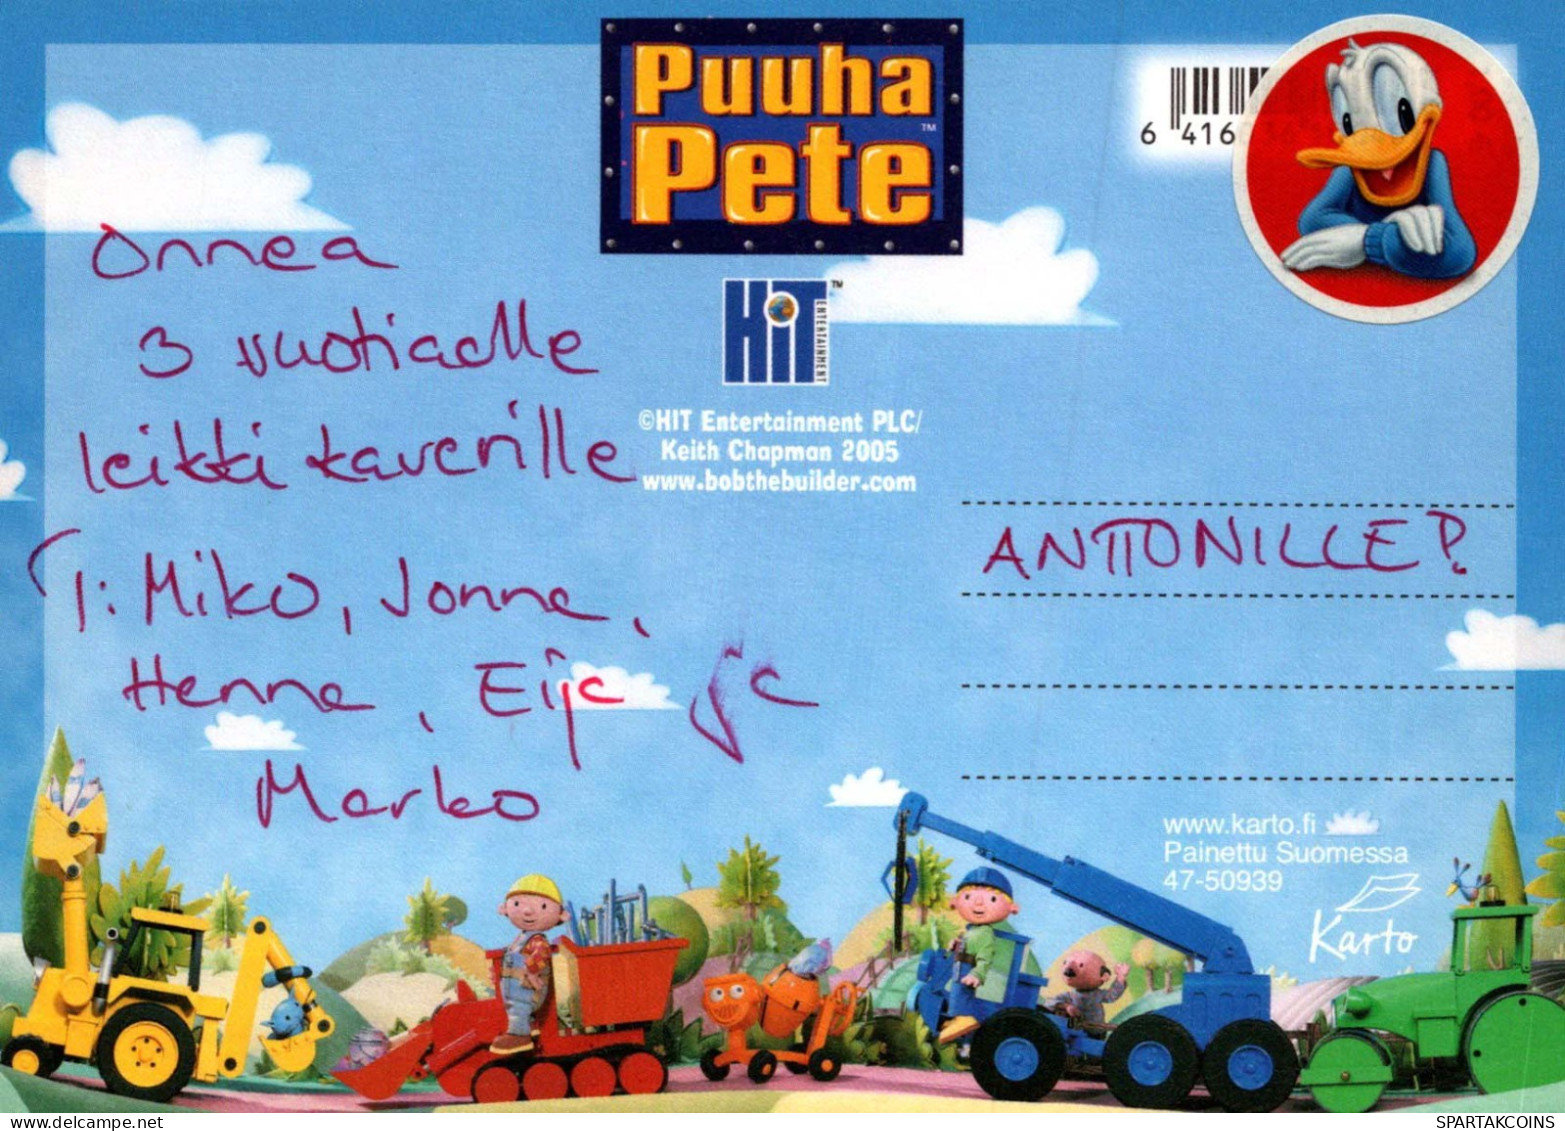 Puuha
Pete™
6 416
Onnea
3 vuotiaalle
leikki kaverille
T: Miko, Jonna,
Henna, Eija ja
Marko
HiT™
ENTERTAINMENT
©HIT Entertainment PLC/
Keith Chapman 2005
www.bobthebuilder.com
ANTTONILLE P.
www.karto.fi
Painettu Suomessa
47-50939
Karto
SPARTAKCOINS